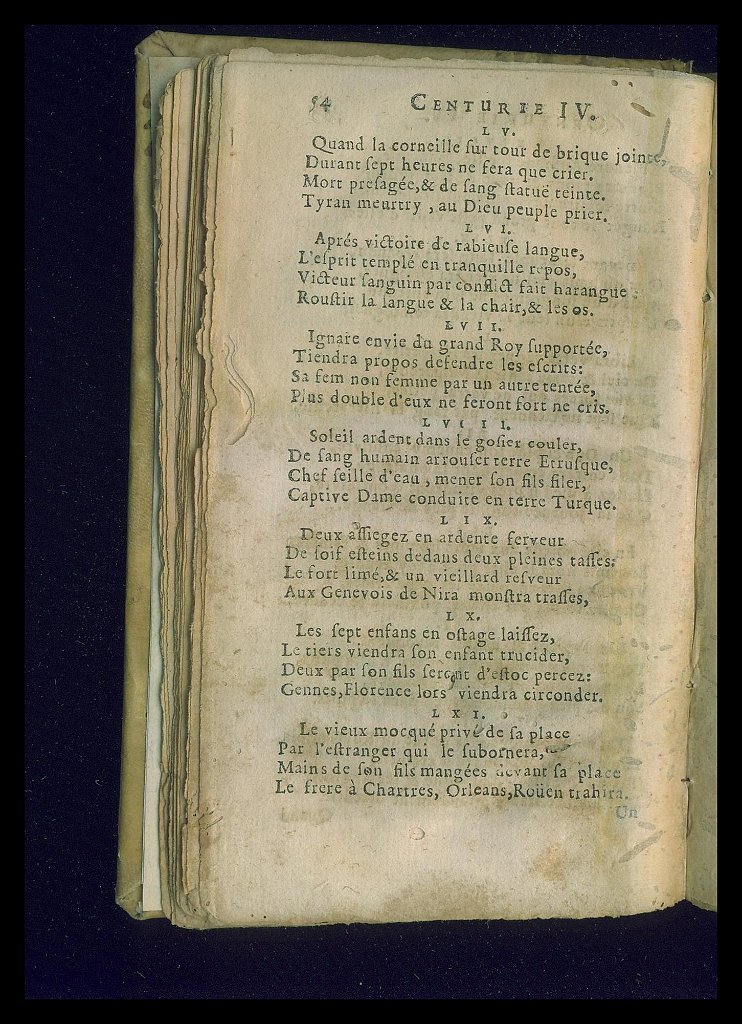 54 CENTURIE IV.
LV.
Quand la corneille ſur tour de brique jointe,
Durant ſept heures ne fera que crier.
Mort preſagée,& de ſang ſtatuë teinte.
Tyran meurtry , au Dieu peuple prier.
LVI.
Aprés victoire de rabieuſe langue,
L'eſprit templé en tranquille repos,
Victeur ſanguin par conflict fait harangue :
Rouſtir la langue & la chair,& les os.
LVII.
Ignare envie du grand Roy ſupportée,
Tiendra propos defendre les eſcrits:
Sa fem non femme par un autre tentée,
Plus double d'eux ne feront fort ne cris.
LVIII.
Soleil ardent dans le goſier couler,
De ſang humain arrouſer terre Etruſque,
Chef ſeille d'eau , mener ſon fils filer,
Captive Dame conduite en terre Turque.
LIX.
Deux aſſiegez en ardente ferveur
De ſoif eſteins dedans deux pleines taſſes:
Le fort limé,& un vieillard reſveur
Aux Genevois de Nira monſtra traſſes,
LX.
Les ſept enfans en oſtage laiſſez,
Le tiers viendra ſon enfant trucider,
Deux par ſon fils ſeront d'eſtoc percez:
Gennes,Florence lors viendra circonder.
LXI.
Le vieux mocqué privé de ſa place
Par l'eſtranger qui le ſubornera,
Mains de ſon fils mangées devant ſa place
Le frere à Chartres, Orleans,Roüen trahira.
Un